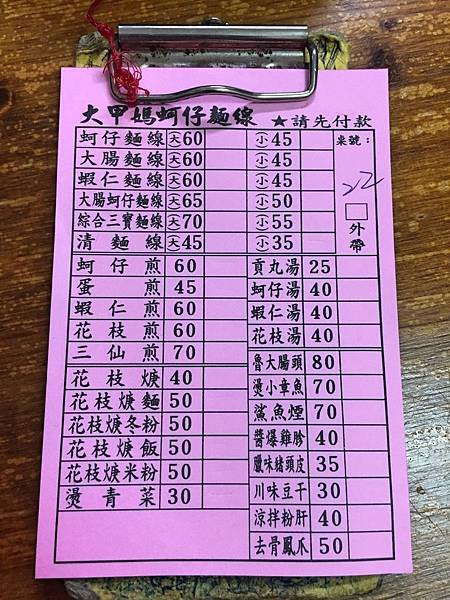 大甲媽蚵仔麵線 ★請先付款
蚵仔麵線 大60 小45 桌號:
大腸麵線 大60 小45
蝦仁麵線 大60 小45 22
大腸蚵仔麵線 大65 小50
綜合三寶麵線 大70 小55 □外帶
清麵線 大45 小35
蚵仔煎 60 貢丸湯 25
蛋煎 45 蚵仔湯 40
蝦仁煎 60 蝦仁湯 40
花枝煎 60 花枝湯 40
三仙煎 70 魯大腸頭 80
花枝焿 40 燙小章魚 70
花枝焿麵 50 鯊魚煙 70
花枝焿冬粉 50 醬爆雞胗 40
花枝焿飯 50 臘味豬頭皮 35
花枝焿米粉 50 川味豆干 30
燙青菜 30 涼拌粉肝 40
去骨鳳爪 50